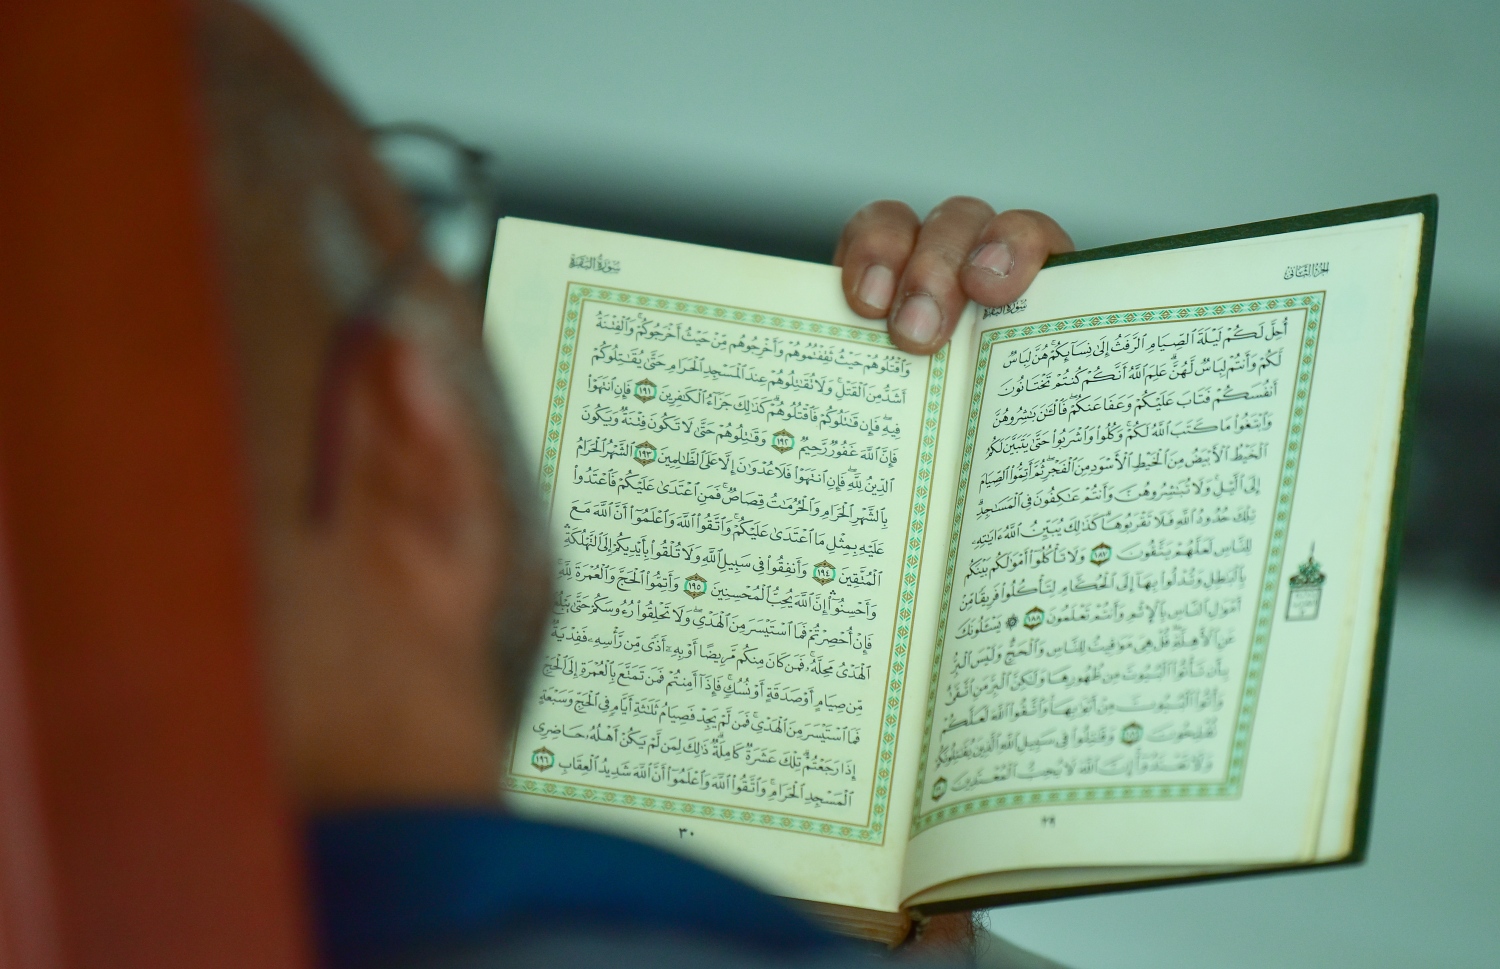 الجزء الثاني
سورة البقرة
أُحِلَّ لَكُمْ لَيْلَةَ ٱلصِّيَامِ ٱلرَّفَثُ إِلَىٰ نِسَآئِكُمْ ۚ هُنَّ لِبَاسٌ
لَّكُمْ وَأَنتُمْ لِبَاسٌ لَّهُنَّ ۗ عَلِمَ ٱللَّهُ أَنَّكُمْ كُنتُمْ تَخْتَانُونَ
أَنفُسَكُمْ فَتَابَ عَلَيْكُمْ وَعَفَا عَنكُمْ ۖ فَٱلْـَٰٔنَ بَـٰشِرُوهُنَّ
وَٱبْتَغُوا۟ مَا كَتَبَ ٱللَّهُ لَكُمْ ۚ وَكُلُوا۟ وَٱشْرَبُوا۟ حَتَّىٰ يَتَبَيَّنَ لَكُمُ
ٱلْخَيْطُ ٱلْأَبْيَضُ مِنَ ٱلْخَيْطِ ٱلْأَسْوَدِ مِنَ ٱلْفَجْرِ ۖ ثُمَّ أَتِمُّوا۟ ٱلصِّيَامَ
إِلَى ٱلَّيْلِ ۚ وَلَا تُبَـٰشِرُوهُنَّ وَأَنتُمْ عَـٰكِفُونَ فِى ٱلْمَسَـٰجِدِ ۗ
تِلْكَ حُدُودُ ٱللَّهِ فَلَا تَقْرَبُوهَا ۗ كَذَٰلِكَ يُبَيِّنُ ٱللَّهُ ءَايَـٰتِهِۦ
لِلنَّاسِ لَعَلَّهُمْ يَتَّقُونَ ١٨٧ وَلَا تَأْكُلُوٓا۟ أَمْوَٰلَكُم بَيْنَكُم
بِٱلْبَـٰطِلِ وَتُدْلُوا۟ بِهَآ إِلَى ٱلْحُكَّامِ لِتَأْكُلُوا۟ فَرِيقًا مِّنْ
أَمْوَٰلِ ٱلنَّاسِ بِٱلْإِثْمِ وَأَنتُمْ تَعْلَمُونَ ١٨٨ ۞ يَسْـَٔلُونَكَ
عَنِ ٱلْأَهِلَّةِ ۖ قُلْ هِىَ مَوَٰقِيتُ لِلنَّاسِ وَٱلْحَجِّ ۗ وَلَيْسَ ٱلْبِرُّ
بِأَن تَأْتُوا۟ ٱلْبُيُوتَ مِن ظُهُورِهَا وَلَـٰكِنَّ ٱلْبِرَّ مَنِ ٱتَّقَىٰ ۗ
وَأْتُوا۟ ٱلْبُيُوتَ مِنْ أَبْوَٰبِهَا ۚ وَٱتَّقُوا۟ ٱللَّهَ لَعَلَّكُمْ
تُفْلِحُونَ ١٨٩ وَقَـٰتِلُوا۟ فِى سَبِيلِ ٱللَّهِ ٱلَّذِينَ يُقَـٰتِلُونَكُمْ
وَلَا تَعْتَدُوٓا۟ ۚ إِنَّ ٱللَّهَ لَا يُحِبُّ ٱلْمُعْتَدِينَ ١٩٠
٢٩
سورة البقرة
وَٱقْتُلُوهُمْ حَيْثُ ثَقِفْتُمُوهُمْ وَأَخْرِجُوهُم مِّنْ حَيْثُ أَخْرَجُوكُمْ ۚ وَٱلْفِتْنَةُ
أَشَدُّ مِنَ ٱلْقَتْلِ ۚ وَلَا تُقَـٰتِلُوهُمْ عِندَ ٱلْمَسْجِدِ ٱلْحَرَامِ حَتَّىٰ يُقَـٰتِلُوكُمْ
فِيهِ ۖ فَإِن قَـٰتَلُوكُمْ فَٱقْتُلُوهُمْ ۗ كَذَٰلِكَ جَزَآءُ ٱلْكَـٰفِرِينَ ١٩١ فَإِنِ ٱنتَهَوْا۟
فَإِنَّ ٱللَّهَ غَفُورٌ رَّحِيمٌ ١٩٢ وَقَـٰتِلُوهُمْ حَتَّىٰ لَا تَكُونَ فِتْنَةٌ وَيَكُونَ
ٱلدِّينُ لِلَّهِ ۖ فَإِنِ ٱنتَهَوْا۟ فَلَا عُدْوَٰنَ إِلَّا عَلَى ٱلظَّـٰلِمِينَ ١٩٣ ٱلشَّهْرُ ٱلْحَرَامُ
بِٱلشَّهْرِ ٱلْحَرَامِ وَٱلْحُرُمَـٰتُ قِصَاصٌ ۚ فَمَنِ ٱعْتَدَىٰ عَلَيْكُمْ فَٱعْتَدُوا۟
عَلَيْهِ بِمِثْلِ مَا ٱعْتَدَىٰ عَلَيْكُمْ ۚ وَٱتَّقُوا۟ ٱللَّهَ وَٱعْلَمُوٓا۟ أَنَّ ٱللَّهَ مَعَ
ٱلْمُتَّقِينَ ١٩٤ وَأَنفِقُوا۟ فِى سَبِيلِ ٱللَّهِ وَلَا تُلْقُوا۟ بِأَيْدِيكُمْ إِلَى ٱلتَّهْلُكَةِ ۛ
وَأَحْسِنُوٓا۟ ۛ إِنَّ ٱللَّهَ يُحِبُّ ٱلْمُحْسِنِينَ ١٩٥ وَأَتِمُّوا۟ ٱلْحَجَّ وَٱلْعُمْرَةَ لِلَّهِ ۚ
فَإِنْ أُحْصِرْتُمْ فَمَا ٱسْتَيْسَرَ مِنَ ٱلْهَدْىِ ۖ وَلَا تَحْلِقُوا۟ رُءُوسَكُمْ حَتَّىٰ يَبْلُغَ
ٱلْهَدْىُ مَحِلَّهُۥ ۚ فَمَن كَانَ مِنكُم مَّرِيضًا أَوْ بِهِۦٓ أَذًى مِّن رَّأْسِهِۦ فَفِدْيَةٌ
مِّن صِيَامٍ أَوْ صَدَقَةٍ أَوْ نُسُكٍ ۚ فَإِذَآ أَمِنتُمْ فَمَن تَمَتَّعَ بِٱلْعُمْرَةِ إِلَى ٱلْحَجِّ
فَمَا ٱسْتَيْسَرَ مِنَ ٱلْهَدْىِ ۚ فَمَن لَّمْ يَجِدْ فَصِيَامُ ثَلَـٰثَةِ أَيَّامٍ فِى ٱلْحَجِّ وَسَبْعَةٍ
إِذَا رَجَعْتُمْ ۗ تِلْكَ عَشَرَةٌ كَامِلَةٌ ۗ ذَٰلِكَ لِمَن لَّمْ يَكُنْ أَهْلُهُۥ حَاضِرِى
ٱلْمَسْجِدِ ٱلْحَرَامِ ۚ وَٱتَّقُوا۟ ٱللَّهَ وَٱعْلَمُوٓا۟ أَنَّ ٱللَّهَ شَدِيدُ ٱلْعِقَابِ ١٩٦
٣٠